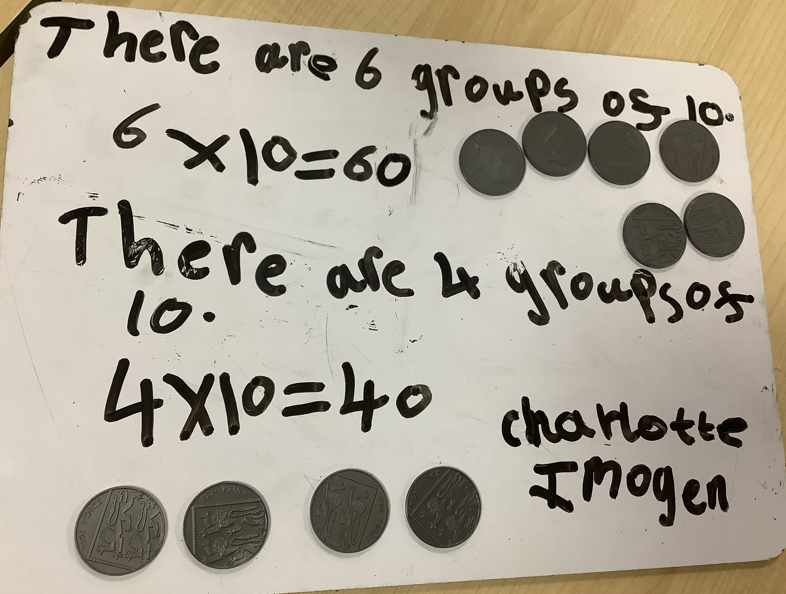 There are 6 groups of 10.
6 x 10 = 60
There are 4 groups of
10.
4 x 10 = 40
charlotte
Imogen